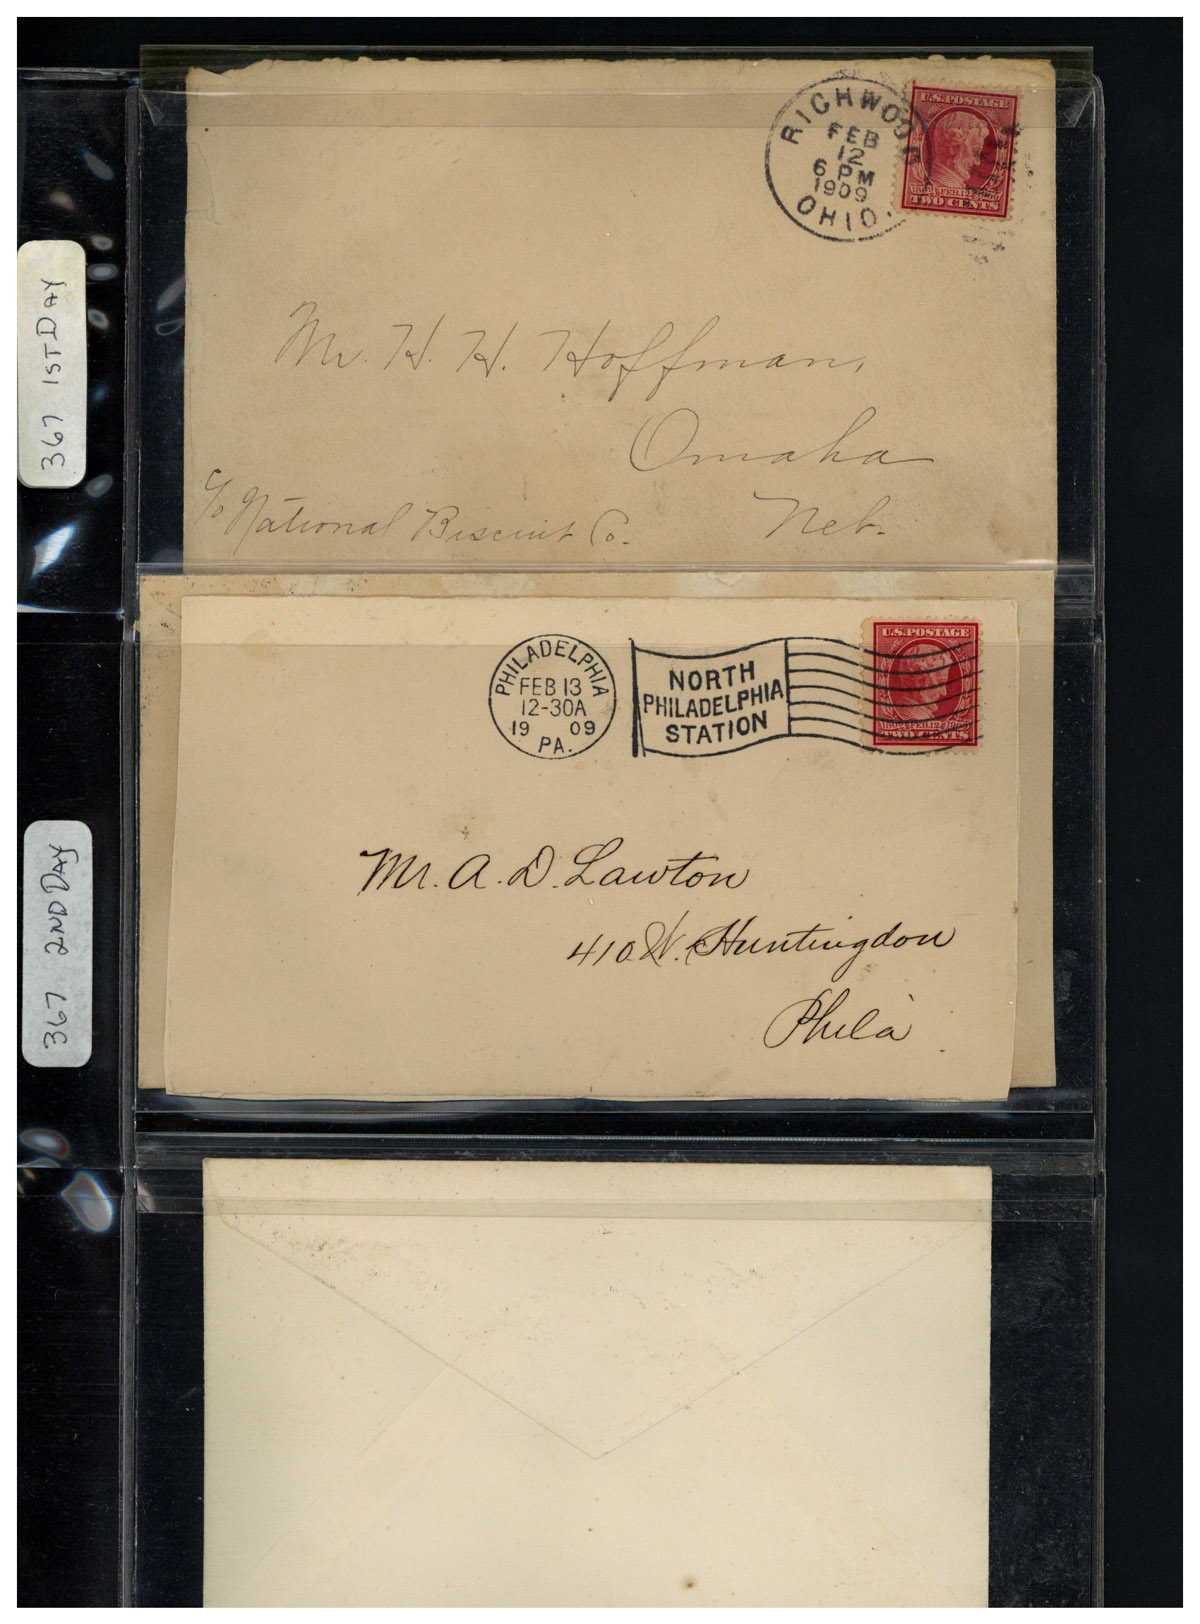 RICHWOOD
FEB
12
6 PM
1909
OHIO.
U.S. POSTAGE
1809 FEB. 12 1909
TWO CENTS
367 1ST DAY
Mr. H. H. Hoffman,
Omaha
Neb.
c/o National Biscuit Co.
PHILADELPHIA
FEB 13
12-30A
19 09
PA.
NORTH
PHILADELPHIA
STATION
U.S. POSTAGE
1809 FEB. 12 1909
TWO CENTS
367 2ND DAY
Mr. A. D. Lawton
410 W. Huntingdon
Phila